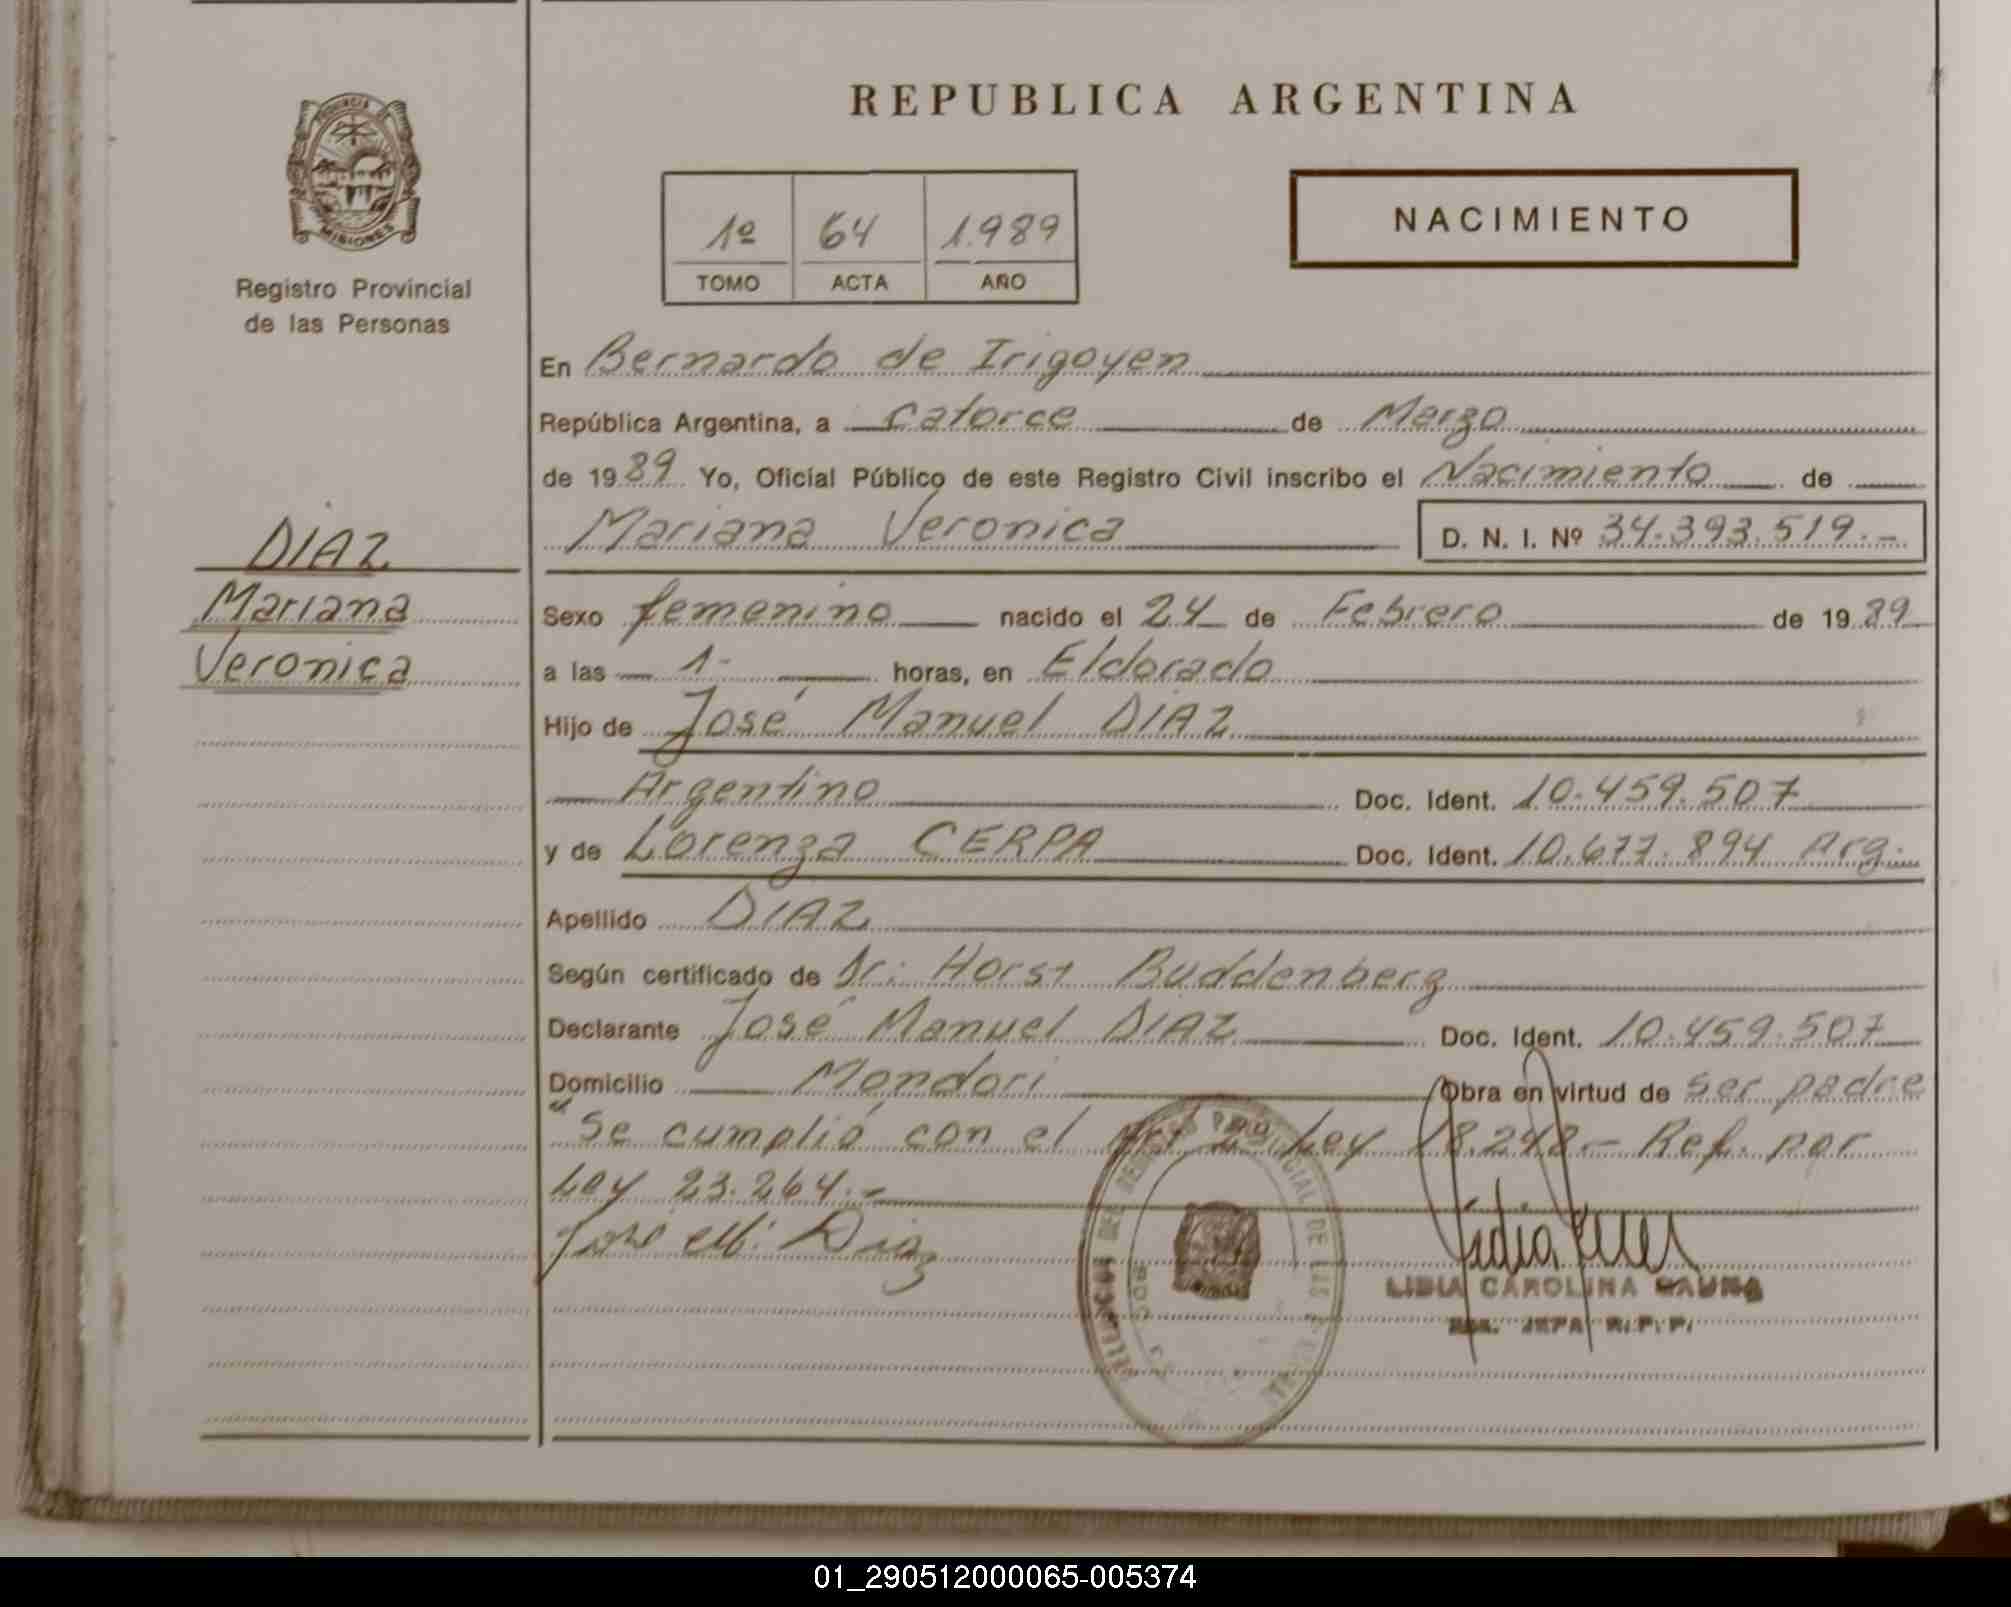 REPUBLICA ARGENTINA
PROVINCIA
MISIONES
Registro Provincial
de las Personas
1º 64 1.989
TOMO ACTA AÑO
NACIMIENTO
En Bernardo de Irigoyen
República Argentina, a catorce de Marzo
de 1989 Yo, Oficial Público de este Registro Civil inscribo el Nacimiento de
Mariana Veronica D. N. I. Nº 34.393.519.-
DIAZ
Mariana
Veronica
Sexo femenino nacido el 24 de Febrero de 1989
a las 1- horas, en Eldorado
Hijo de José Manuel DIAZ
Argentino Doc. Ident. 10.459.507
y de Lorenza CERPA Doc. Ident. 10.677.894 Arg.
Apellido DIAZ
Según certificado de Dr: Horst Buddenberg
Declarante José Manuel DIAZ Doc. Ident. 10.459.507
Domicilio Mondori Obra en virtud de ser padre
"Se cumplió con el Art 2º Ley 18.248.- Ref. por
Ley 23.264.-
José M. Diaz
LIDIA CAROLINA
JEFA R.P.P.
01_290512000065-005374